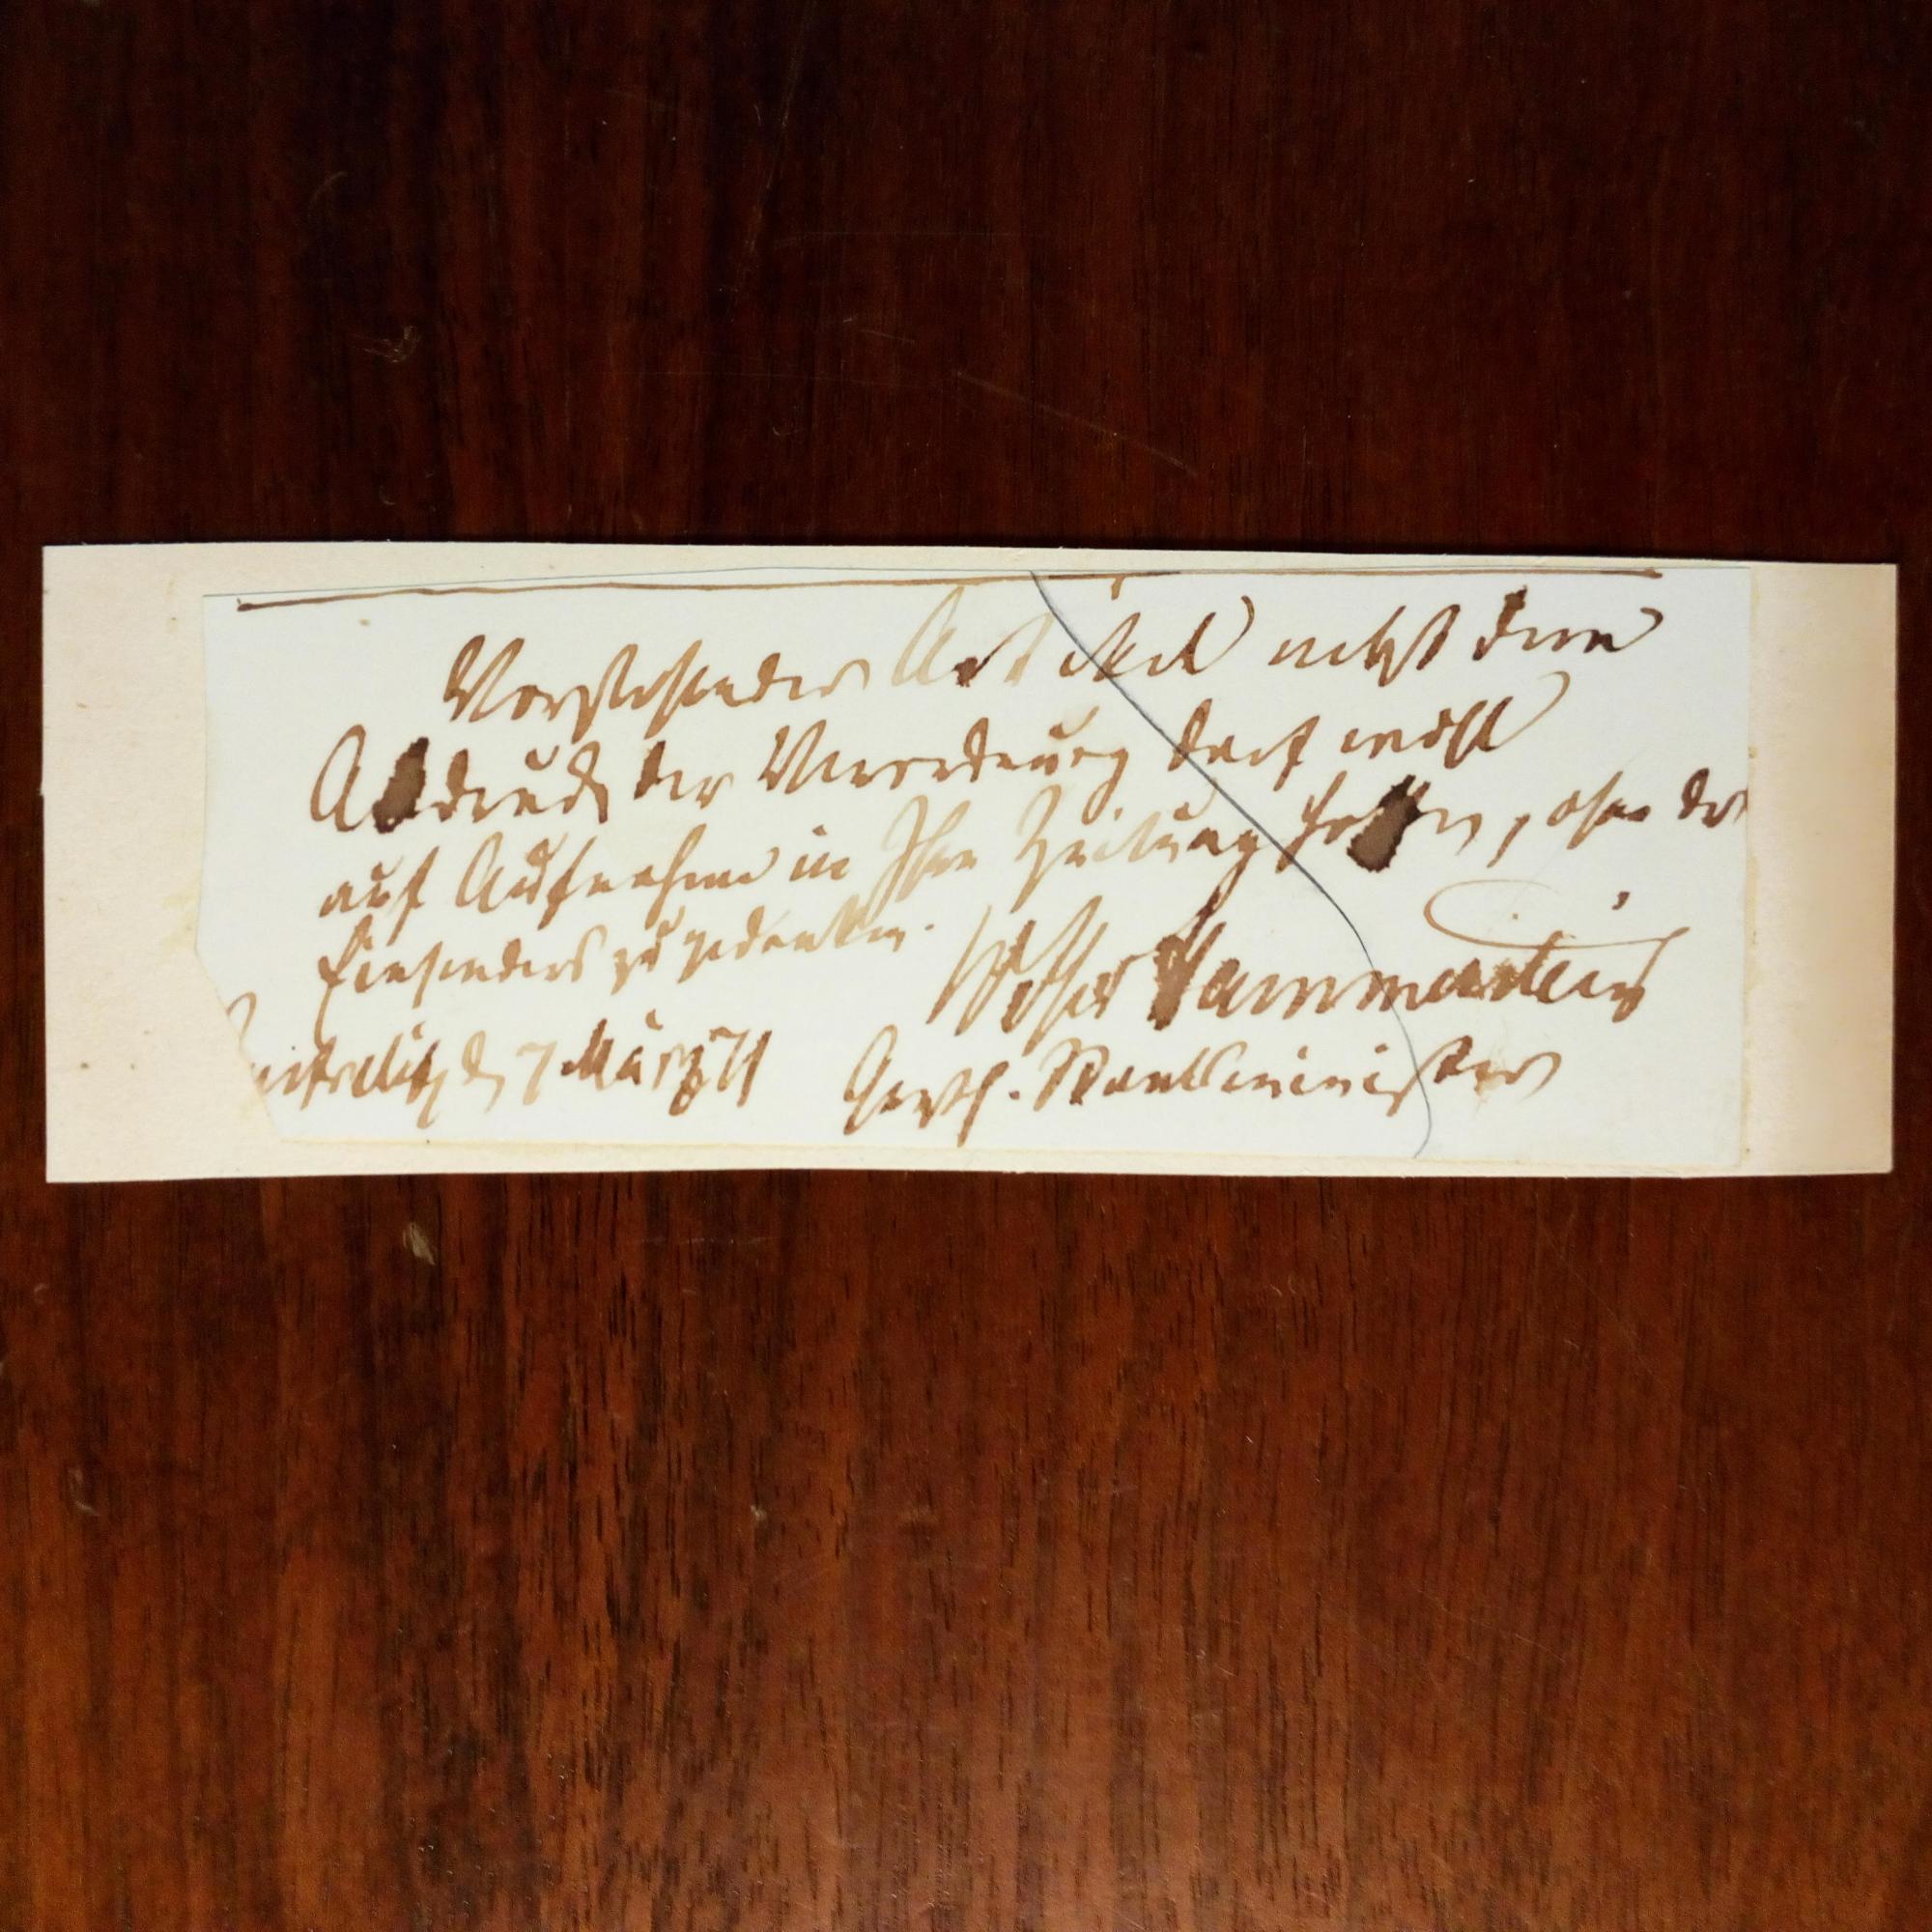 Vorstehender Artikel nebst dem
Abdruck der Verordnung darf wohl
auf Aufnahme in Ihre Zeitung hoffen, ohne des
Einsenders zu gedenken.
Hammerstein
Neustrelitz d 7 März 71
Staatsminister